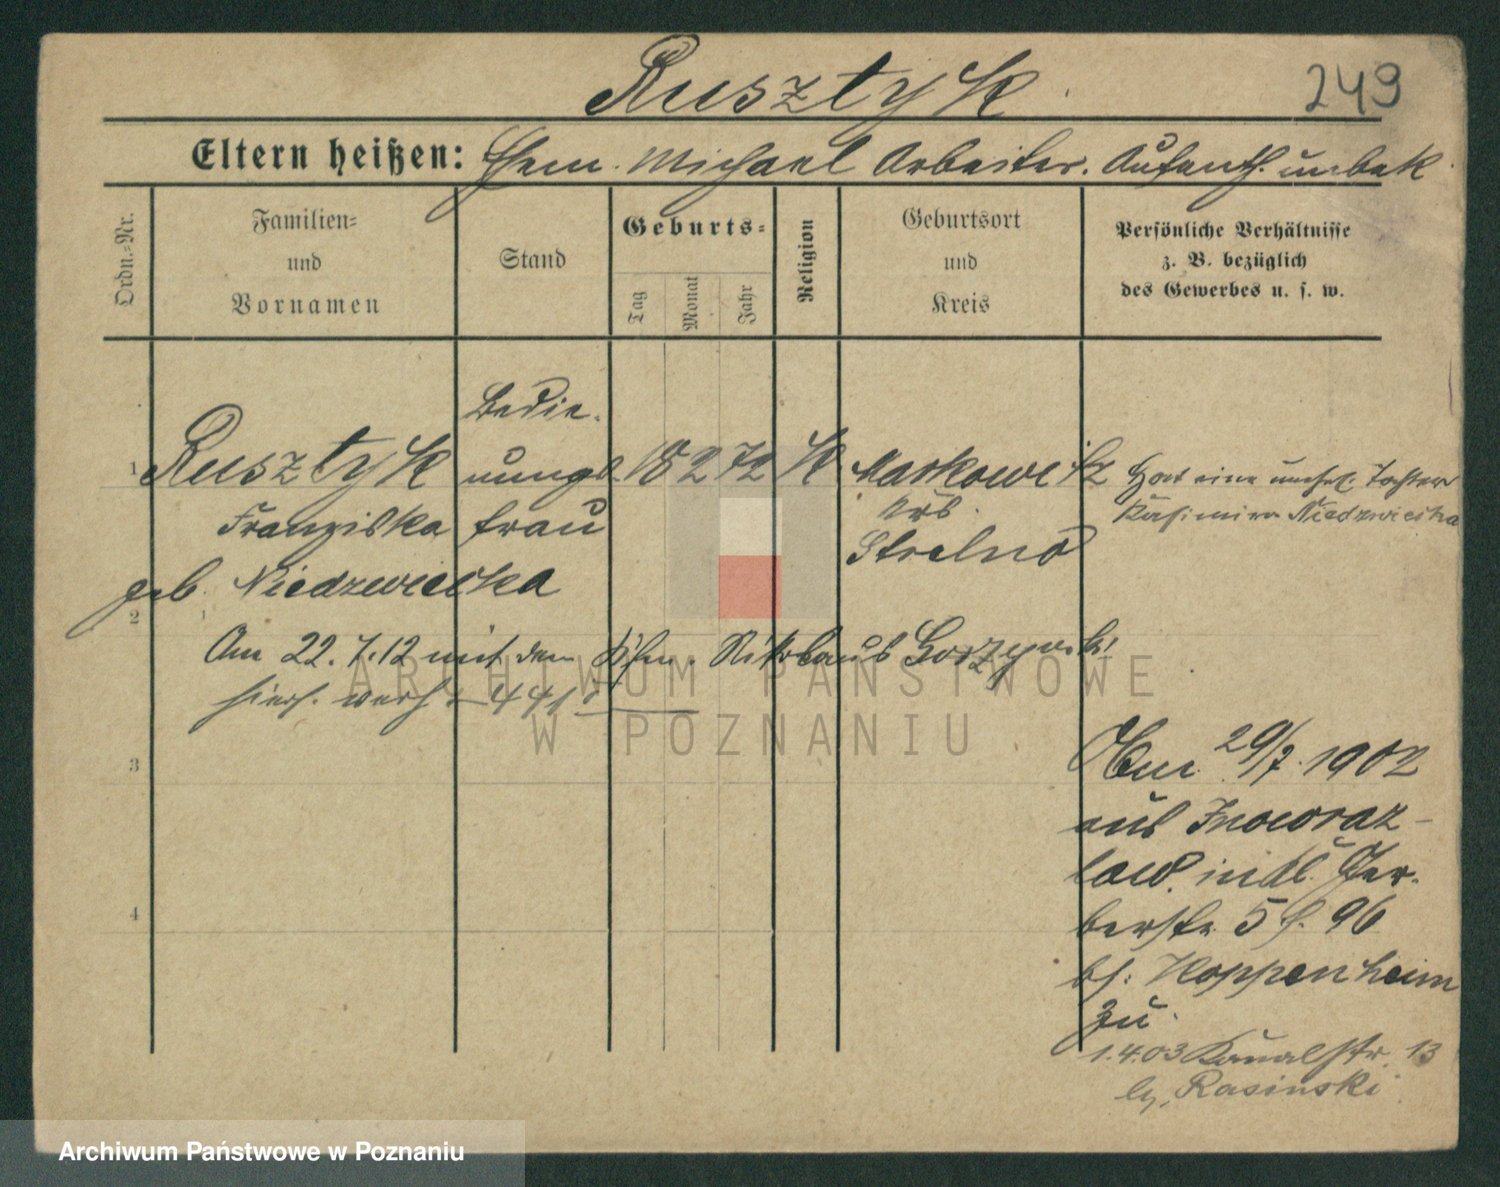 Rusztyk
249
Eltern heißen: Ehem. Michael Arbeiter. Aufenth. unbek
Ordn.=Nr.
Familien=
und
Vornamen
Stand
Geburts=
Tag
Monat
Jahr
Religion
Geburtsort
und
Kreis
Persönliche Verhältnisse
z. B. bezüglich
des Gewerbes u. s. w.
1
Rusztyk
Franziska
geb. Niedzwiecka
Bedie-
nungs-
frau
18 2 72
K
Markowitz
Krs.
Strelno
Hat eine unehel. Tochter
Kasimira Niedzwiecka
2
Am 22.7.12 mit dem Nikolaus
hiers. verh.
3
4
Am 29/7. 1902
aus Inowraz-
law.
berstr. 5 96
bs: Hoppenheim
zu.
1.4.03 Kanalstr. 13
Rasinski
ARCHIWUM PAŃSTWOWE
W POZNANIU
Archiwum Państwowe w Poznaniu